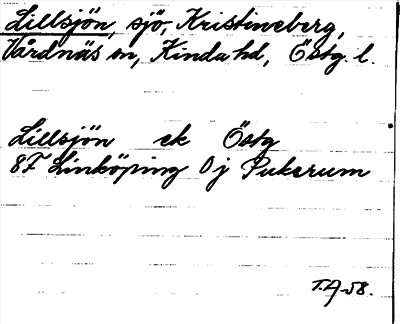 Lillsjön, sjö, Kristineberg,
Vårdnäs sn, Kinda hd, Östg. l.
Lillsjön ek Östg
8F Linköping 0j Pukerum
T.A-58.